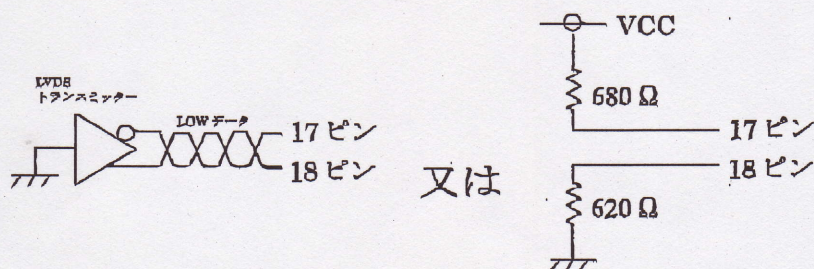 LVDS
トランスミッター
LOWデータ
17 ピン
18 ピン
又は
VCC
680 Ω
17 ピン
18 ピン
620 Ω